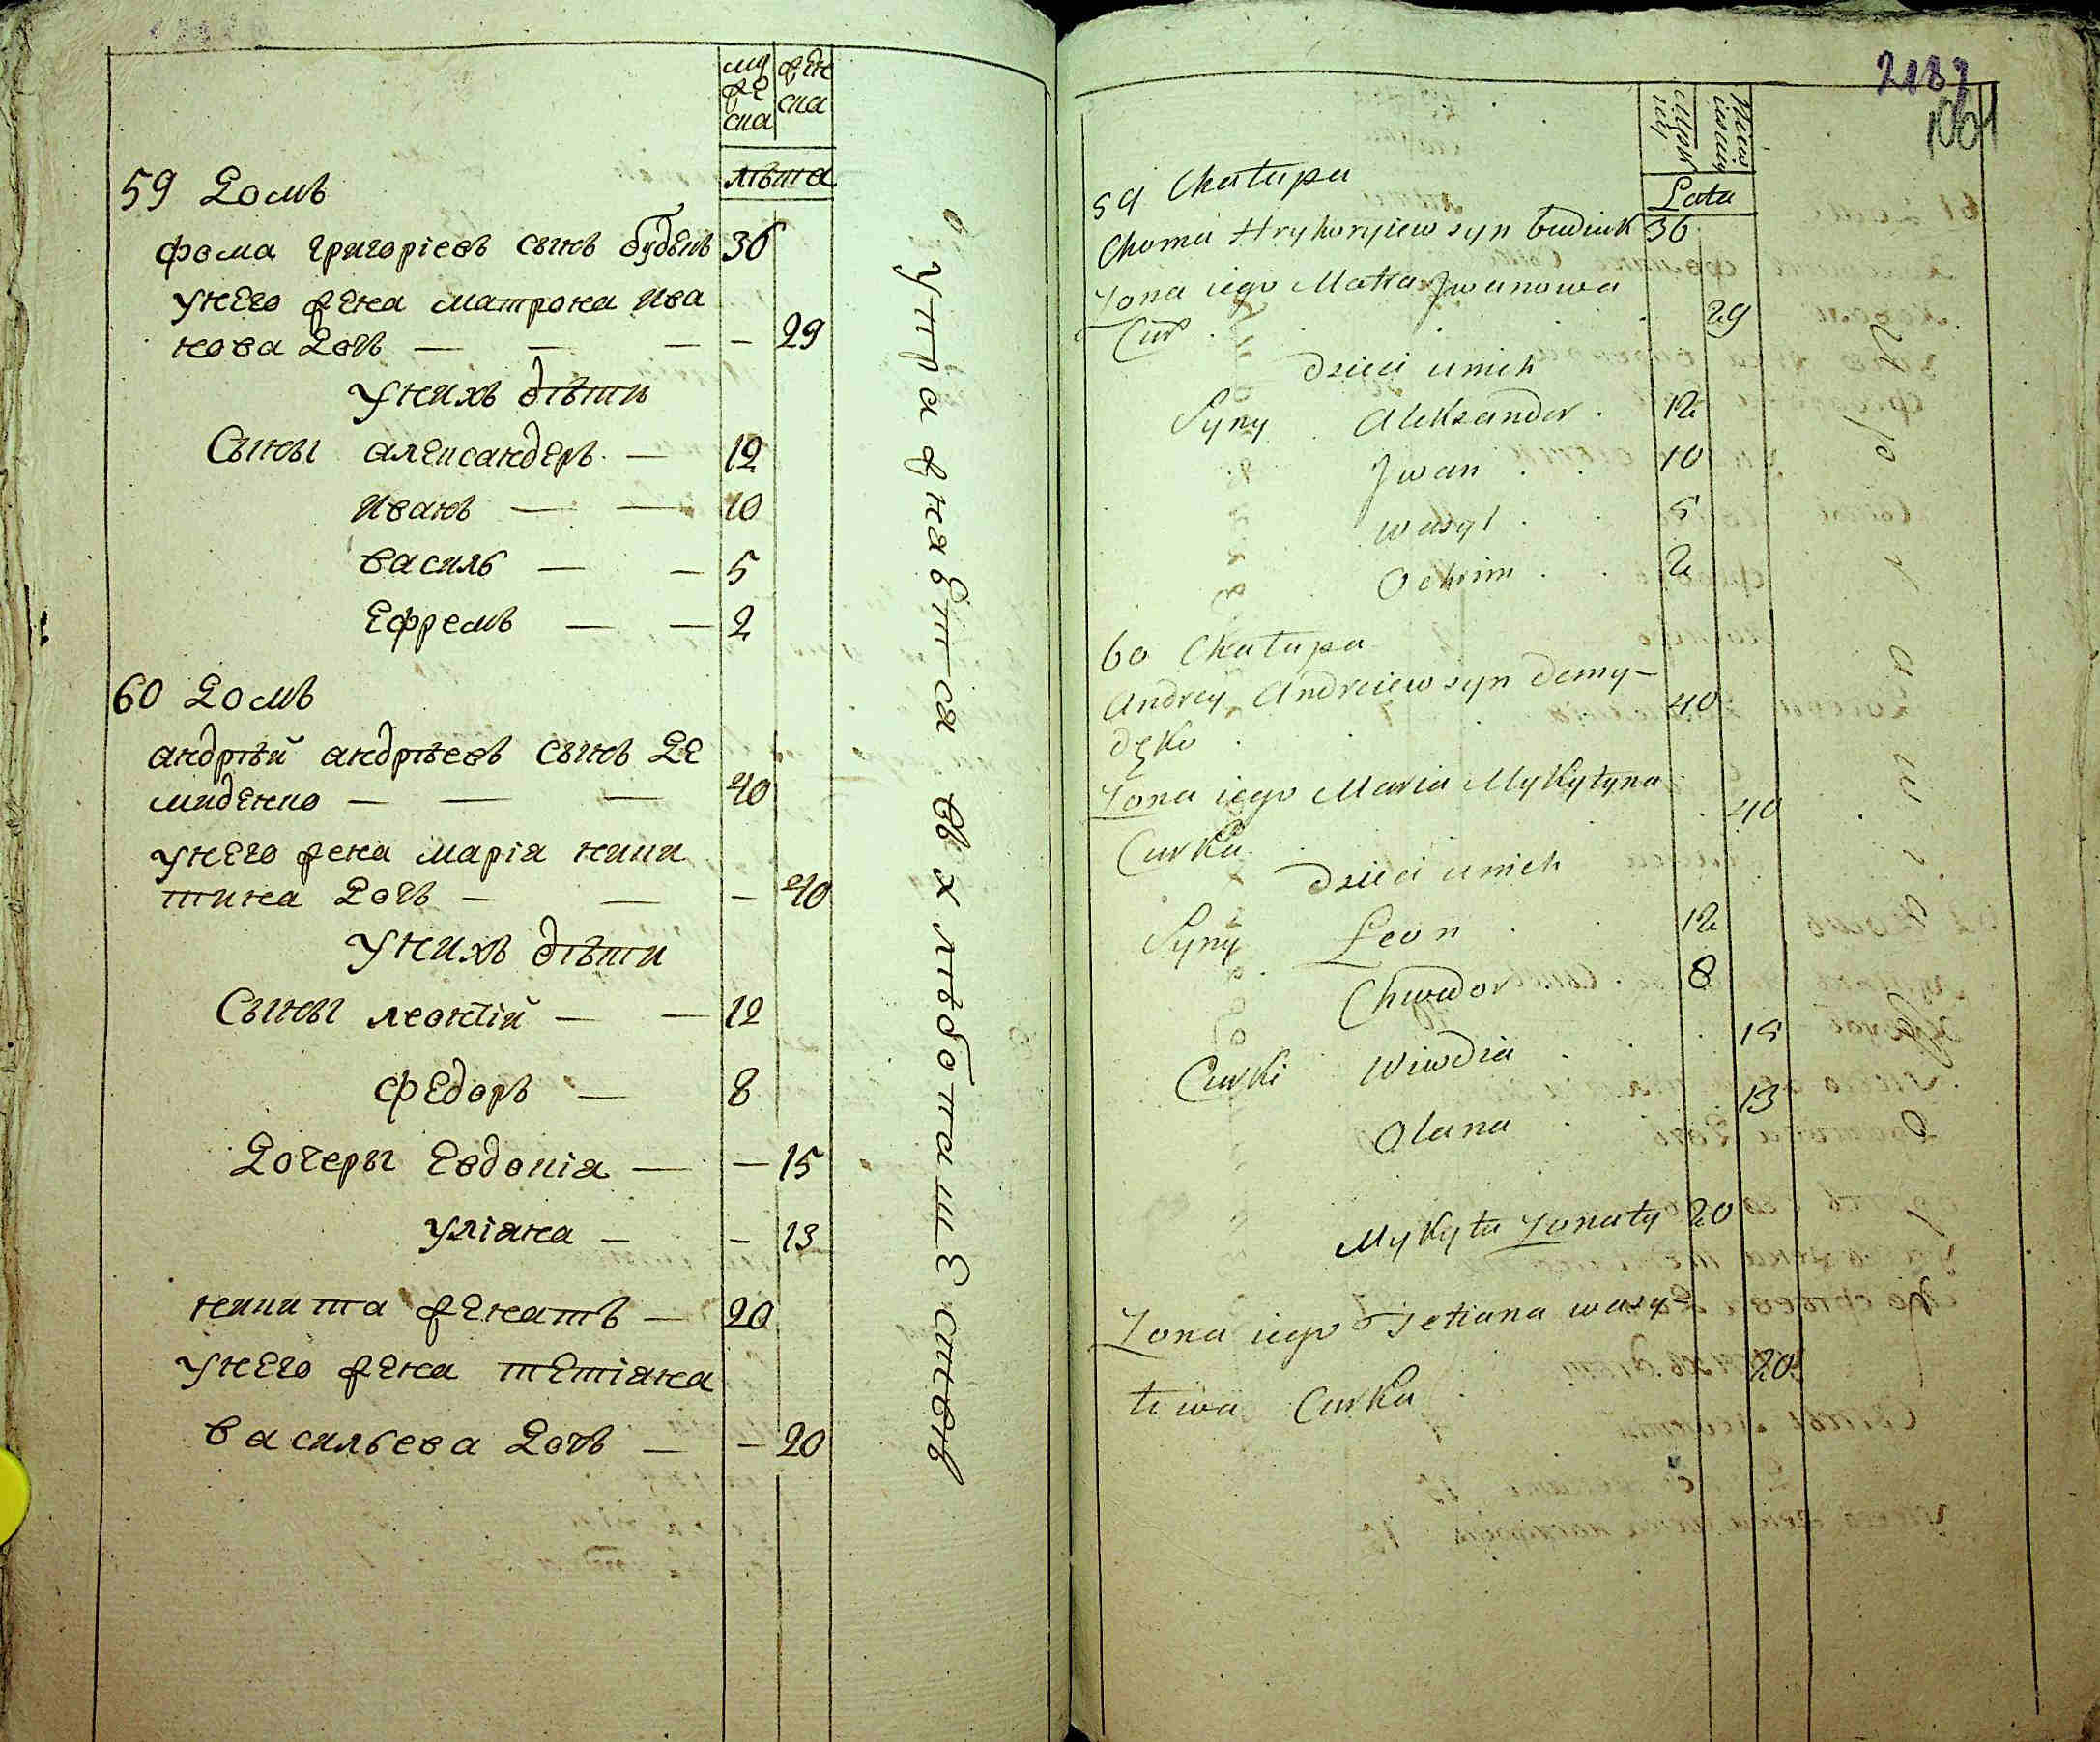 му
же
ска
жен
ска
лѣта
59 Домъ
фома григоріевъ сынъ будѣкъ 36
унего жена матрона ива
нова дочъ — — — — 29
унихъ дѣти
Сыны александеръ — 12
иванъ — — 10
василь — — 5
Ефремъ — — 2
60 Домъ
андрѣй андрѣевъ сынъ де
миденко — — — 40
унего жена марія ники
тина дочъ — — — 40
унихъ дѣти
Сыны леонтій — — 12
федоръ — 8
Дочеры Евдокія — — 15
уліяна — — 13
никита женатъ — 20
унего жена тетіяна
васильева дочъ — — 20
упражнявται-ся въ хлѣбопашествѣ
2187
1061
Lata
59 Chałupa
Choma Hryhoryiew syn budiuk 36
Zona iego Matra Jwanowa
Cur . . . . 29
dzieci unich
Syny Aleksander . 12
Jwan . . 10
wasyl . . 5
Ochrim . . 2
60 Chałupa
Andrey Andreiew syn demy-
dęko . . . 40
Zona iego Maria Mykytyna
Curka . . . 40
dzieci unich
Syny Leon . . 12
Chwedor . . 8
Curki Wiwdia . . . 15
Olana . . 13
Mykyta Zonaty 20
Zona iego Tetiana wasy-
lewa Curka . 20